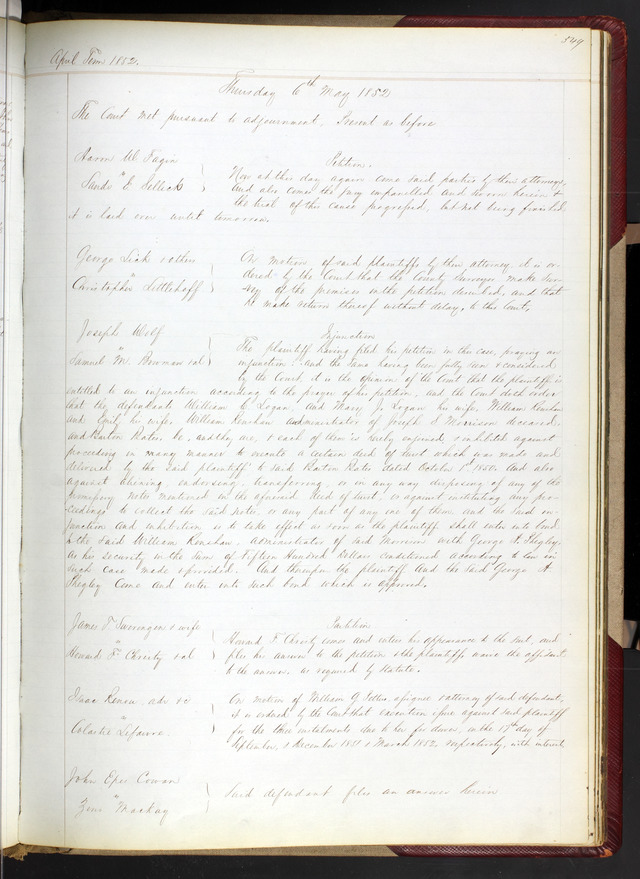 549
April Term 1852.
Thursday 6th May 1852
The Court met pursuant to adjournment. Present as before
Aaron W. Fagin
vs
E. Sellick
Petition.
Now at this day again come said parties by their attorneys,
And also comes the jury empannelled and sworn herein &
the trial of this cause progressed, but not being finished
it is laid over until tomorrow.
George & others
vs
Christopher
On motion of said plaintiffs by their attorney it is or-
dered by the Court that the County Surveyor make Sur-
vey of the premises in the petition described, and that
he make return thereof without delay, to this Court.
Joseph Wolf
vs
Samuel M. Bowman & al
Injunction
The plaintiff having filed his petition in this case, praying an
injunction and the same having been fully seen & considered
by the Court, it is the opinion of the Court that the plaintiff is
entitled to an injunction according to the prayer of his petition, and the Court doth order
that the defendants William C. Logan, and Mary J. Logan his wife, William Renshaw
and Emily his wife, William Renshaw administrator of Joseph S Morrison deceased,
and Barton Bates, be, and they are, & each of them is hereby enjoined & inhibited against
proceeding in many manner to execute a certain deed of trust which was made and
delivered by the said plaintiff to said Barton Bates dated October 1st 1850. And also
against aliening, endorsing, transferring, or in any way disposing of any of the
promissory notes mentioned in the aforesaid deed of trust, or against instituting any pro-
ceedings to collect the said notes or any part of any one of them and the said in-
junction and inhibition is to take effect as soon as the plaintiff shall enter into bond
to the said William Renshaw administrator of said Morrison with George H.
as his security in the sum of Fifteen Hundred Dollars conditioned according to law in
such case made & provided. And thereupon the plaintiff and the said George H
Came and enter into such bond which is approved.
James T. Swearingen & wife
vs
Howard F. Christy & al
Partition
Howard F. Christy comes and enters his appearance to the suit, and
files his answer to the petition & the plaintiffs waive the affidavit
to the answer as required by Statute.
Isaac adm &c
vs
On motion of William assignee & attorney of said defendant,
it is ordered by the Court that execution issue against said plaintiff
for the three instalments due to her for dower, on the 13th day of
September, & December 1851 & March 1852, respectively, with interest
John Cowan
vs
Zeno Mackay
Said defendant files an answer herein